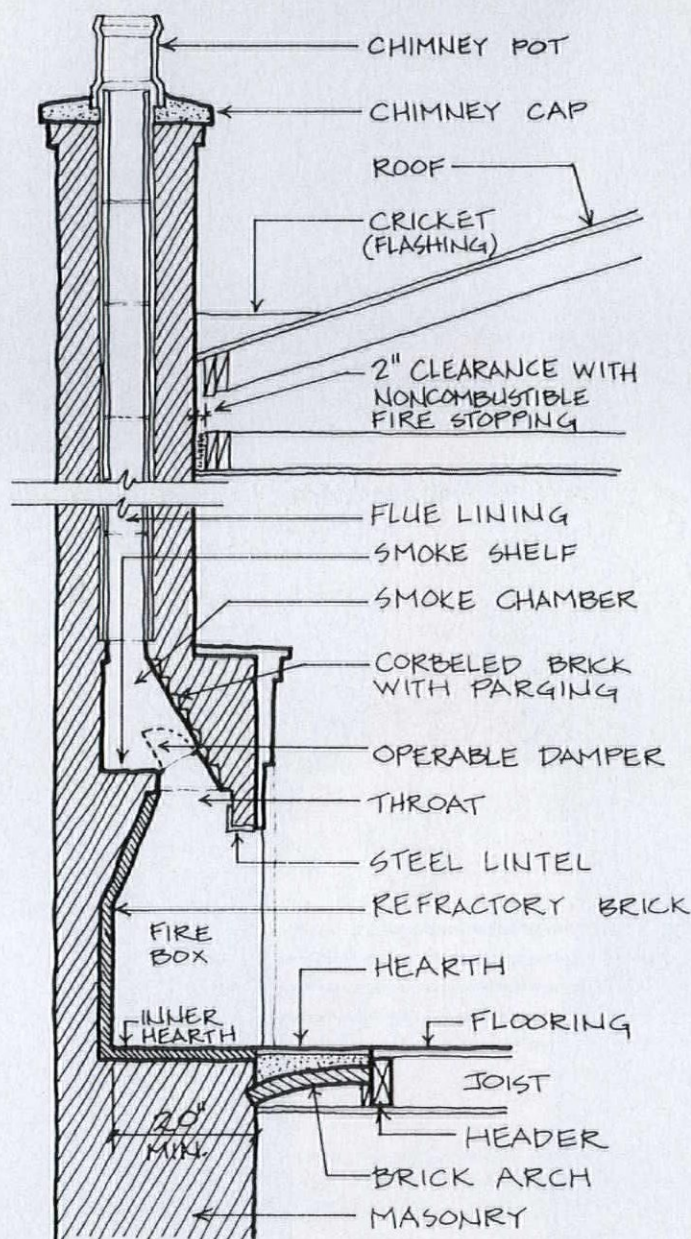 CHIMNEY POT
CHIMNEY CAP
ROOF
CRICKET
(FLASHING)
2" CLEARANCE WITH
NONCOMBUSTIBLE
FIRE STOPPING
FLUE LINING
SMOKE SHELF
SMOKE CHAMBER
CORBELED BRICK
WITH PARGING
OPERABLE DAMPER
THROAT
STEEL LINTEL
REFRACTORY BRICK
FIRE
BOX
HEARTH
INNER
HEARTH
FLOORING
JOIST
20"
MIN.
HEADER
BRICK ARCH
MASONRY